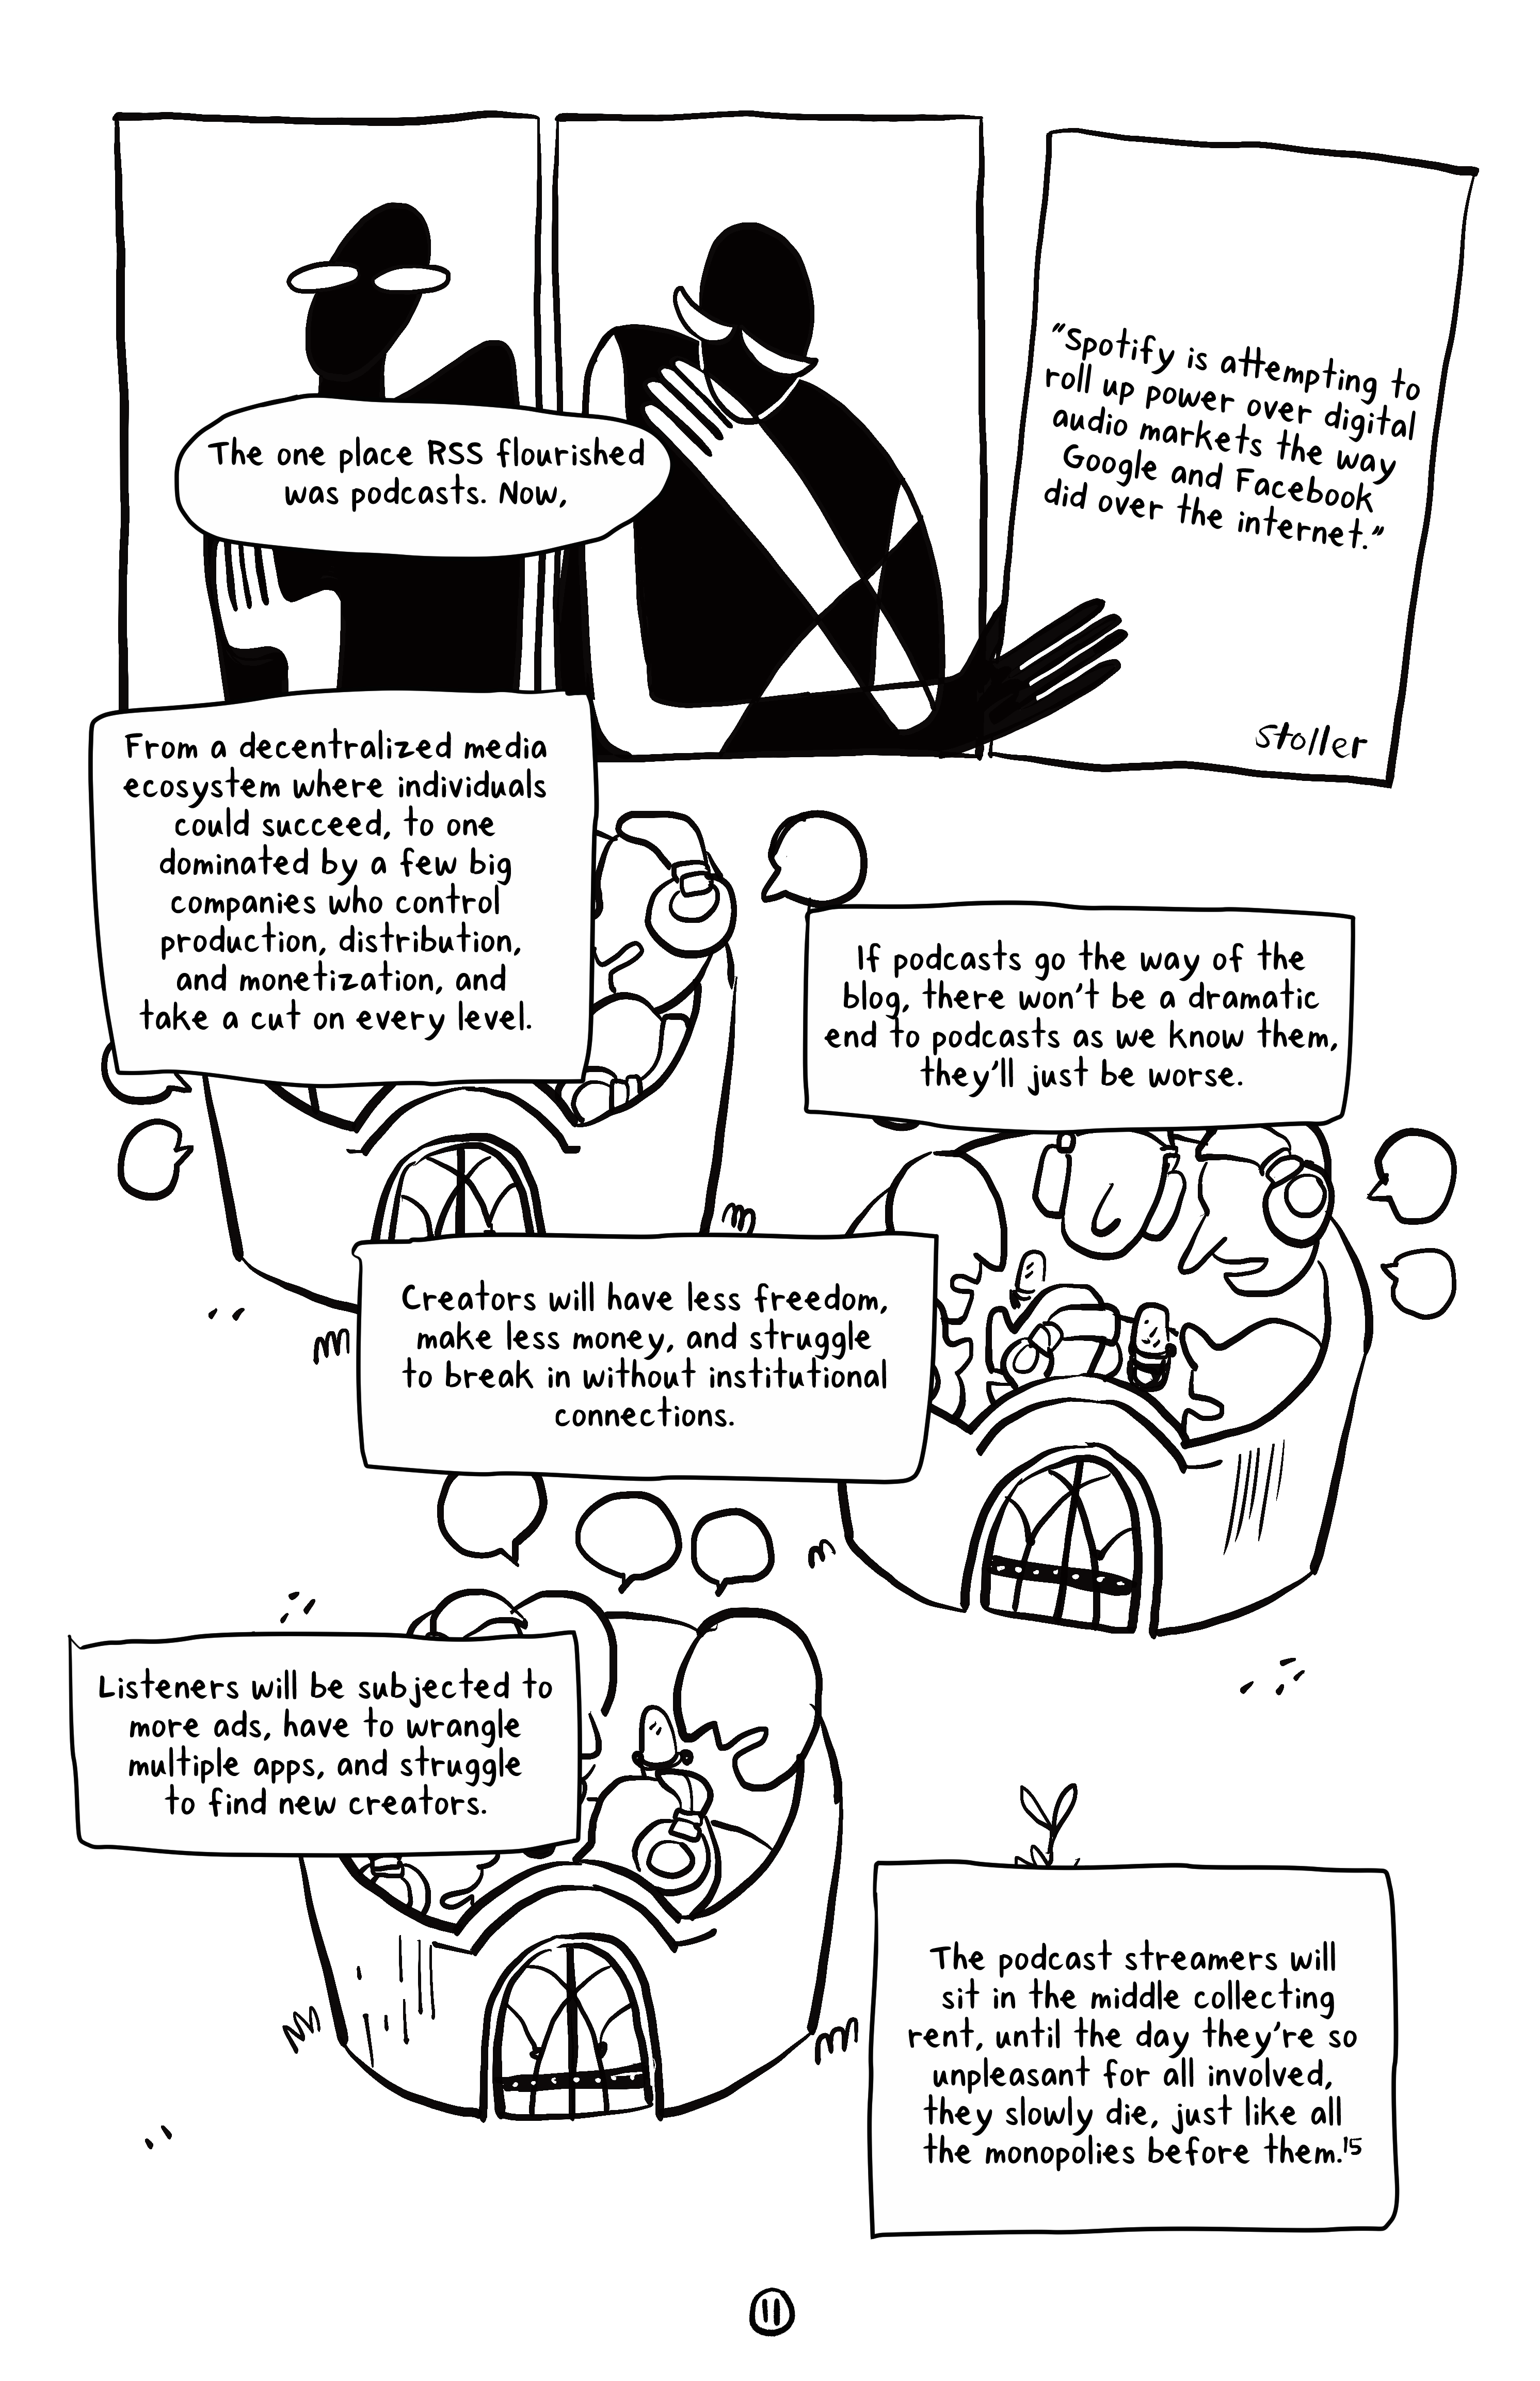 The one place RSS flourished
was podcasts. Now,
"Spotify is attempting to
roll up power over digital
audio markets the way
Google and Facebook
did over the internet."
stoller
From a decentralized media
ecosystem where individuals
could succeed, to one
dominated by a few big
companies who control
production, distribution,
and monetization, and
take a cut on every level.
If podcasts go the way of the
blog, there won't be a dramatic
end to podcasts as we know them,
they'll just be worse.
Creators will have less freedom,
make less money, and struggle
to break in without institutional
connections.
Listeners will be subjected to
more ads, have to wrangle
multiple apps, and struggle
to find new creators.
The podcast streamers will
sit in the middle collecting
rent, until the day they're so
unpleasant for all involved,
they slowly die, just like all
the monopolies before them.15
11